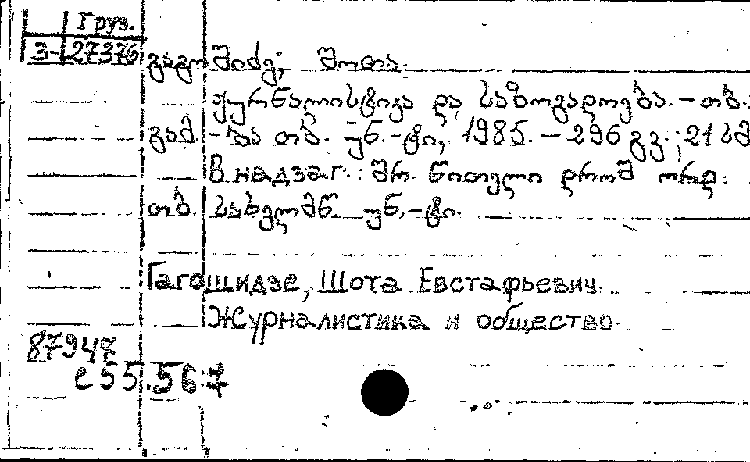 Груз.
3-27376
გაგოშიძე, შოთა.
ჟურნალისტიკა და საზოგადოება. - თბ.:
გამ. - ბა თბ. უნ.-ტი, 1985. - 296 გვ.; 21 სმ
В надзаг.: შრ. წითელი დროშ. ორდ.
თბ. სახელმწ. უნ.-ტი.
Гагошидзе, Шота Евстафьевич.
Журналистика и общество.
87947
е55.567